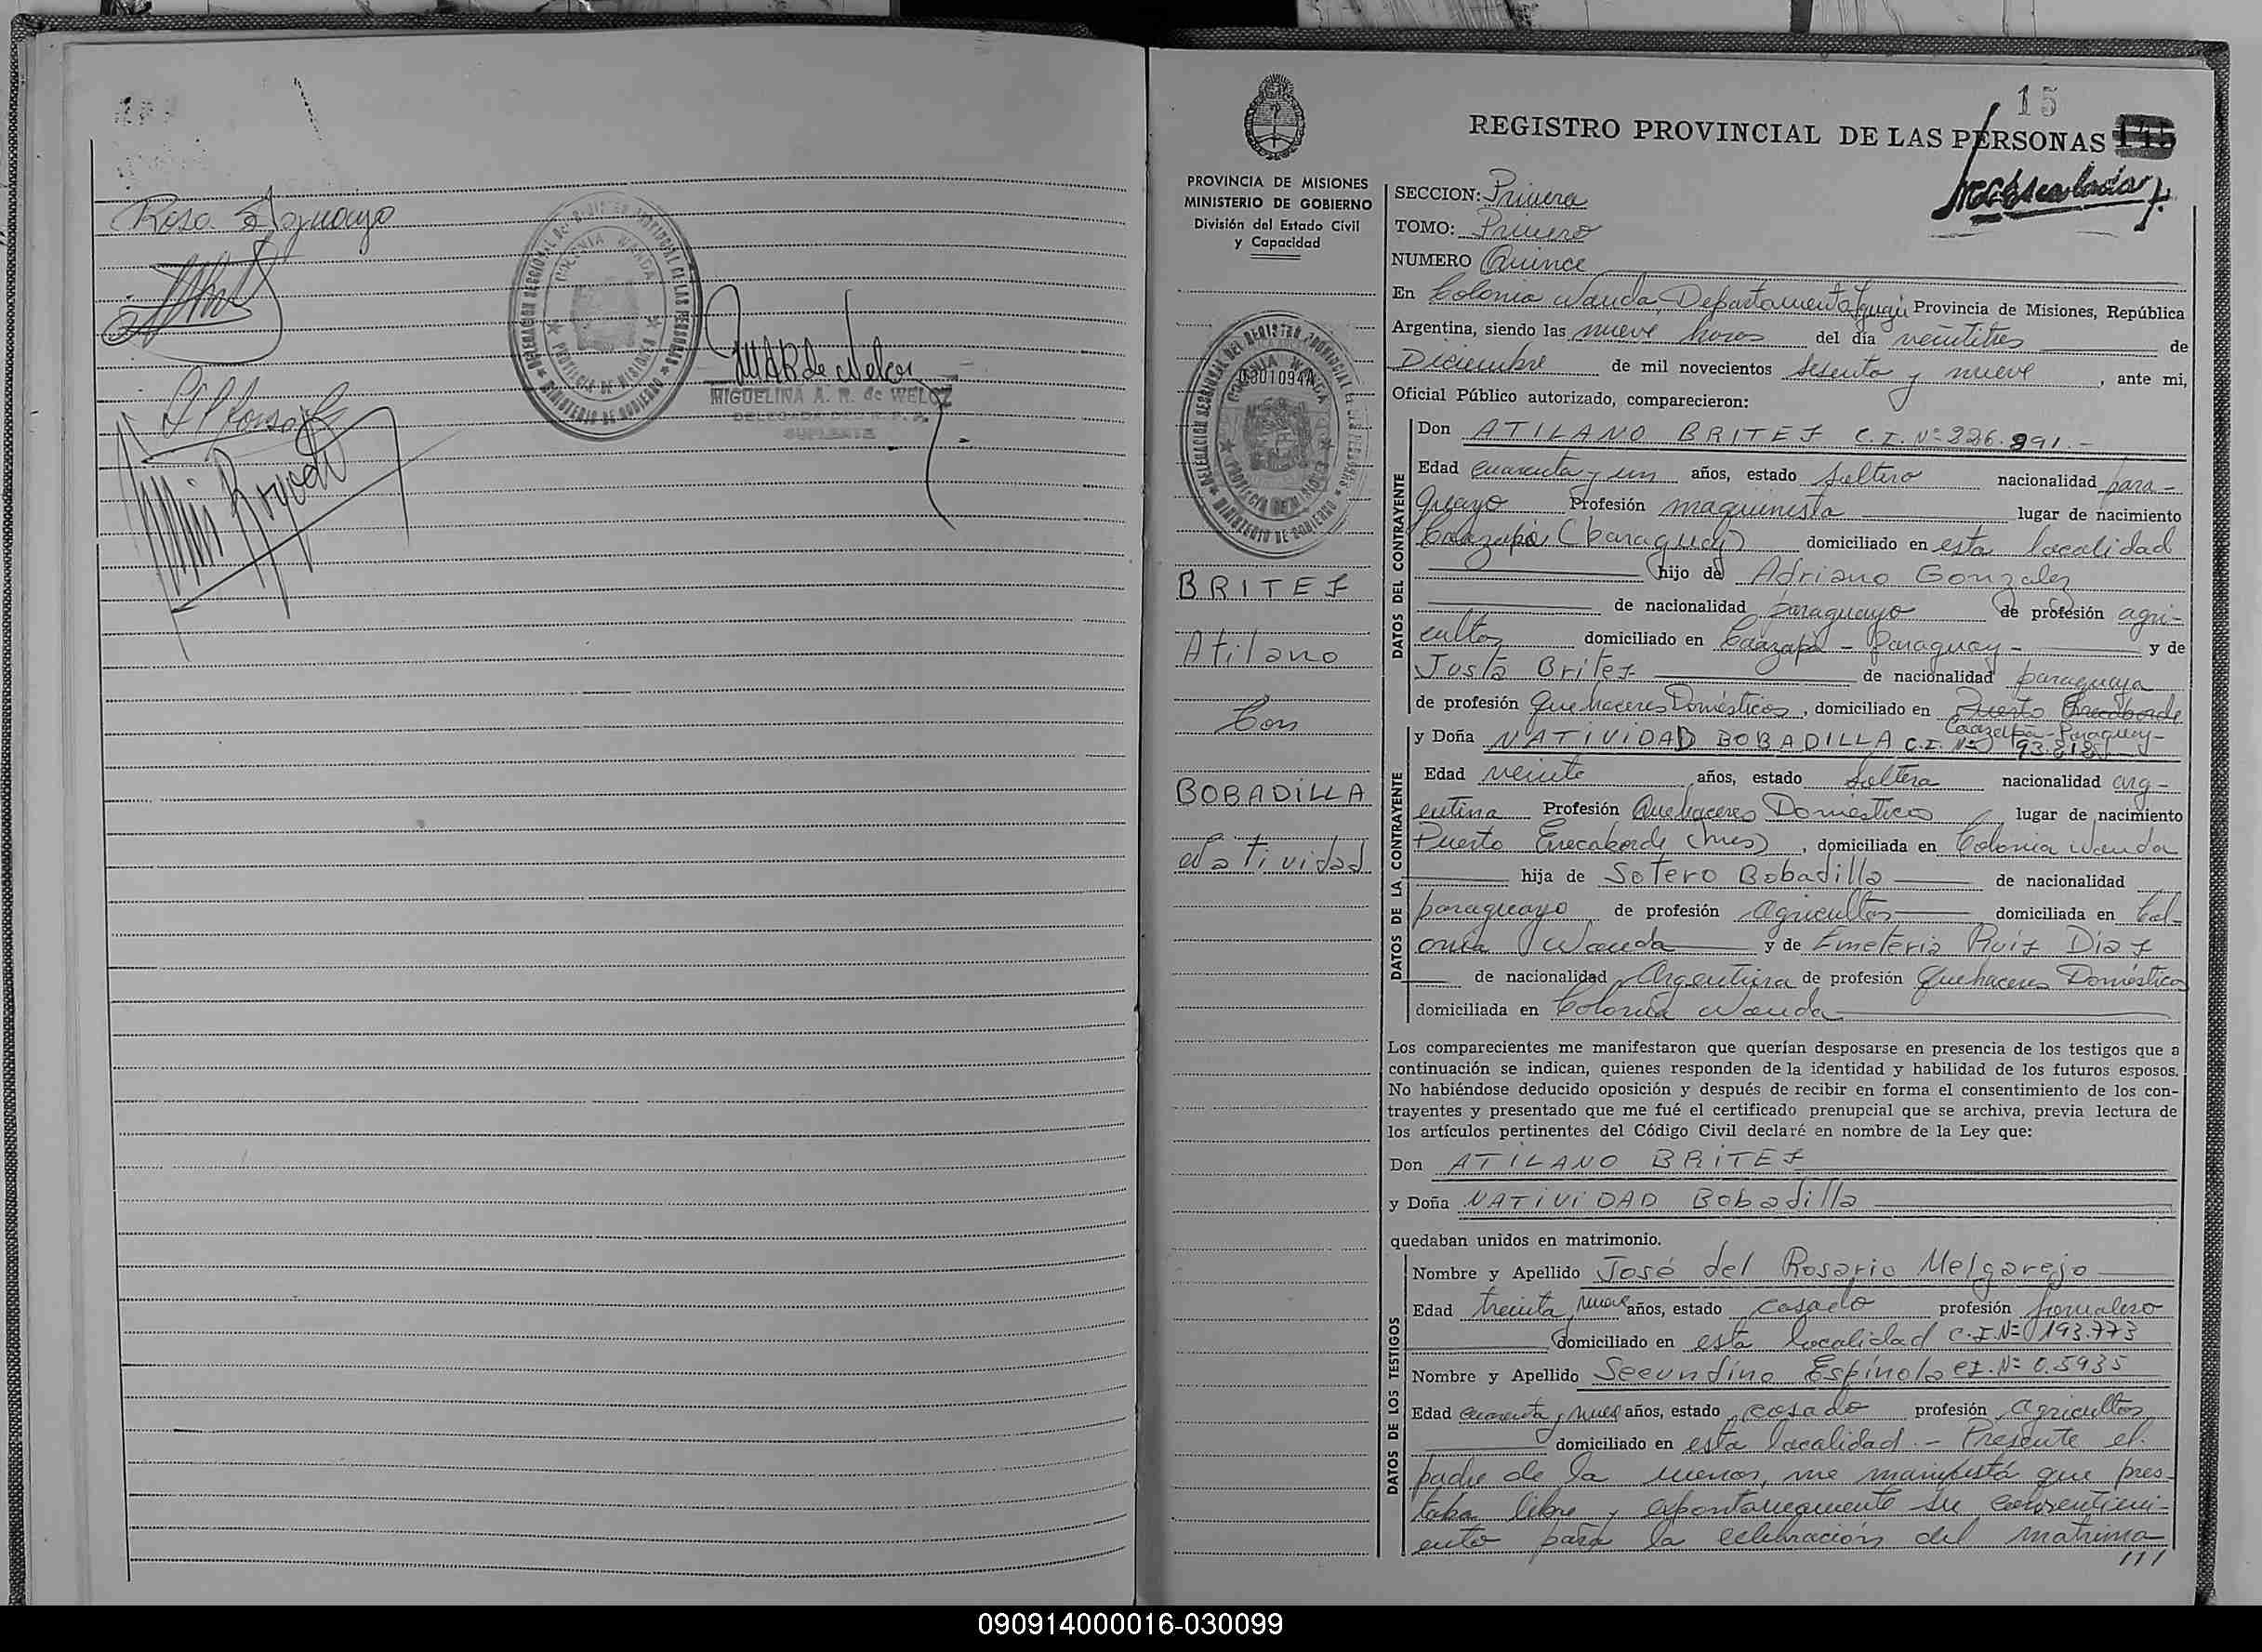 Rosa Aguayo
DELEGACION SECCIONAL DEL REGISTRO PROVINCIAL DE LAS PERSONAS
COLONIA WANDA
PROVINCIA DE MISIONES
MINISTERIO DE GOBIERNO
MIGUELINA A. R. de WELCZ
DELEGADA DEL R. P. P.
SUPLENTE
15
REGISTRO PROVINCIAL DE LAS PERSONAS 145
PROVINCIA DE MISIONES
MINISTERIO DE GOBIERNO
División del Estado Civil
y Capacidad
SECCION: Primera
TOMO: Primero
NUMERO Quince
En Colonia Wanda, Departamento Iguazú Provincia de Misiones, República
Argentina, siendo las nueve horas del día veintitres de
Diciembre de mil novecientos sesenta y nueve, ante mi,
Oficial Público autorizado, comparecieron:
DATOS DEL CONTRAYENTE
Don ATILANO BRITEZ C.I. Nº 226.891.-
Edad cuarenta y un años, estado soltero nacionalidad para-
guayo Profesión maquinista lugar de nacimiento
Caazapá (Paraguay) domiciliado en esta localidad
hijo de Adriano Gonzalez
de nacionalidad paraguayo de profesión agri-
cultor domiciliado en Caazapá - Paraguay - y de
Justa Britez de nacionalidad paraguaya
de profesión Quehaceres Domésticos, domiciliado en Puerto
Caazapá - Paraguay-
DATOS DE LA CONTRAYENTE
y Doña NATIVIDAD BOBADILLA C.I. Nº 93.818
Edad veinte años, estado soltera nacionalidad arg-
entina Profesión Quehaceres Domésticos lugar de nacimiento
Puerto (Mnes), domiciliada en Colonia Wanda
hija de Sotero Bobadilla de nacionalidad
paraguayo de profesión Agricultor domiciliada en Col-
onia Wanda y de Emeteria Ruiz Diaz
de nacionalidad Argentina de profesión Quehaceres Domésticos
domiciliada en Colonia Wanda
BRITEZ
Atilano
Con
BOBADILLA
Natividad
Los comparecientes me manifestaron que querían desposarse en presencia de los testigos que a
continuación se indican, quienes responden de la identidad y habilidad de los futuros esposos.
No habiéndose deducido oposición y después de recibir en forma el consentimiento de los con-
trayentes y presentado que me fué el certificado prenupcial que se archiva, previa lectura de
los artículos pertinentes del Código Civil declaré en nombre de la Ley que:
Don ATILANO BRITEZ
y Doña NATIVIDAD Bobadilla
quedaban unidos en matrimonio.
DATOS DE LOS TESTIGOS
Nombre y Apellido José del Rosario Melgarejo
Edad treinta nueve años, estado casado profesión jornalero
domiciliado en esta localidad C.I. Nº 193.773
Nombre y Apellido Secundino Espínola C.I. Nº 0.5935
Edad cuarenta y nueve años, estado casado profesión agricultor
domiciliado en esta localidad.- Presente el
padre de la menor, me manifestó que pres-
taba libre y espontaneamente su consentimi-
ento para la celebración del matrimo
///
090914000016-030099